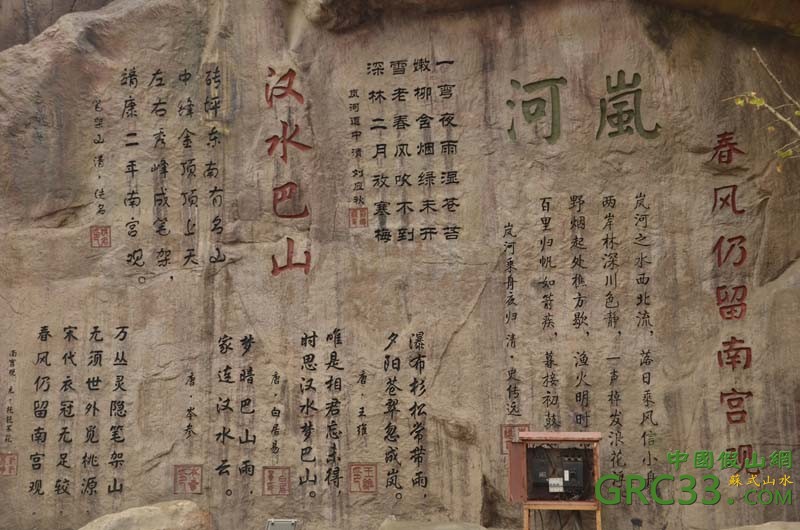 春风仍留南宫观
嵐河
岚河之水西北流，落日乘风信小舟
两岸林深川色静，一声棹发浪花
野烟起处樵方歇，渔火明时
百里归帆如箭疾，暮接初鼓
岚河乘舟夜归 清·史传远
一弯夜雨湿苍苔
嫩柳含烟绿未开
雪老春风吹不到
深林二月放寒梅
岚河道中 清 刘应秋
汉水巴山
砖坪东南有名山
中峰金顶顶上天
左右秀峰成笔架，
靖康二年南宫观。
笔架山 清·佚名
瀑布杉松常带雨，
夕阳苍翠忽成岚。
唐·王维
唯是相君忘未得，
时思汉水梦巴山。
唐·白居易
梦暗巴山雨，
家连汉水云。
唐·岑参
万丛灵隐笔架山
无须世外觅桃源
宋代衣冠无足较
春风仍留南宫观。
南宫观
中國假山網
GRC33.com
蘇式山水